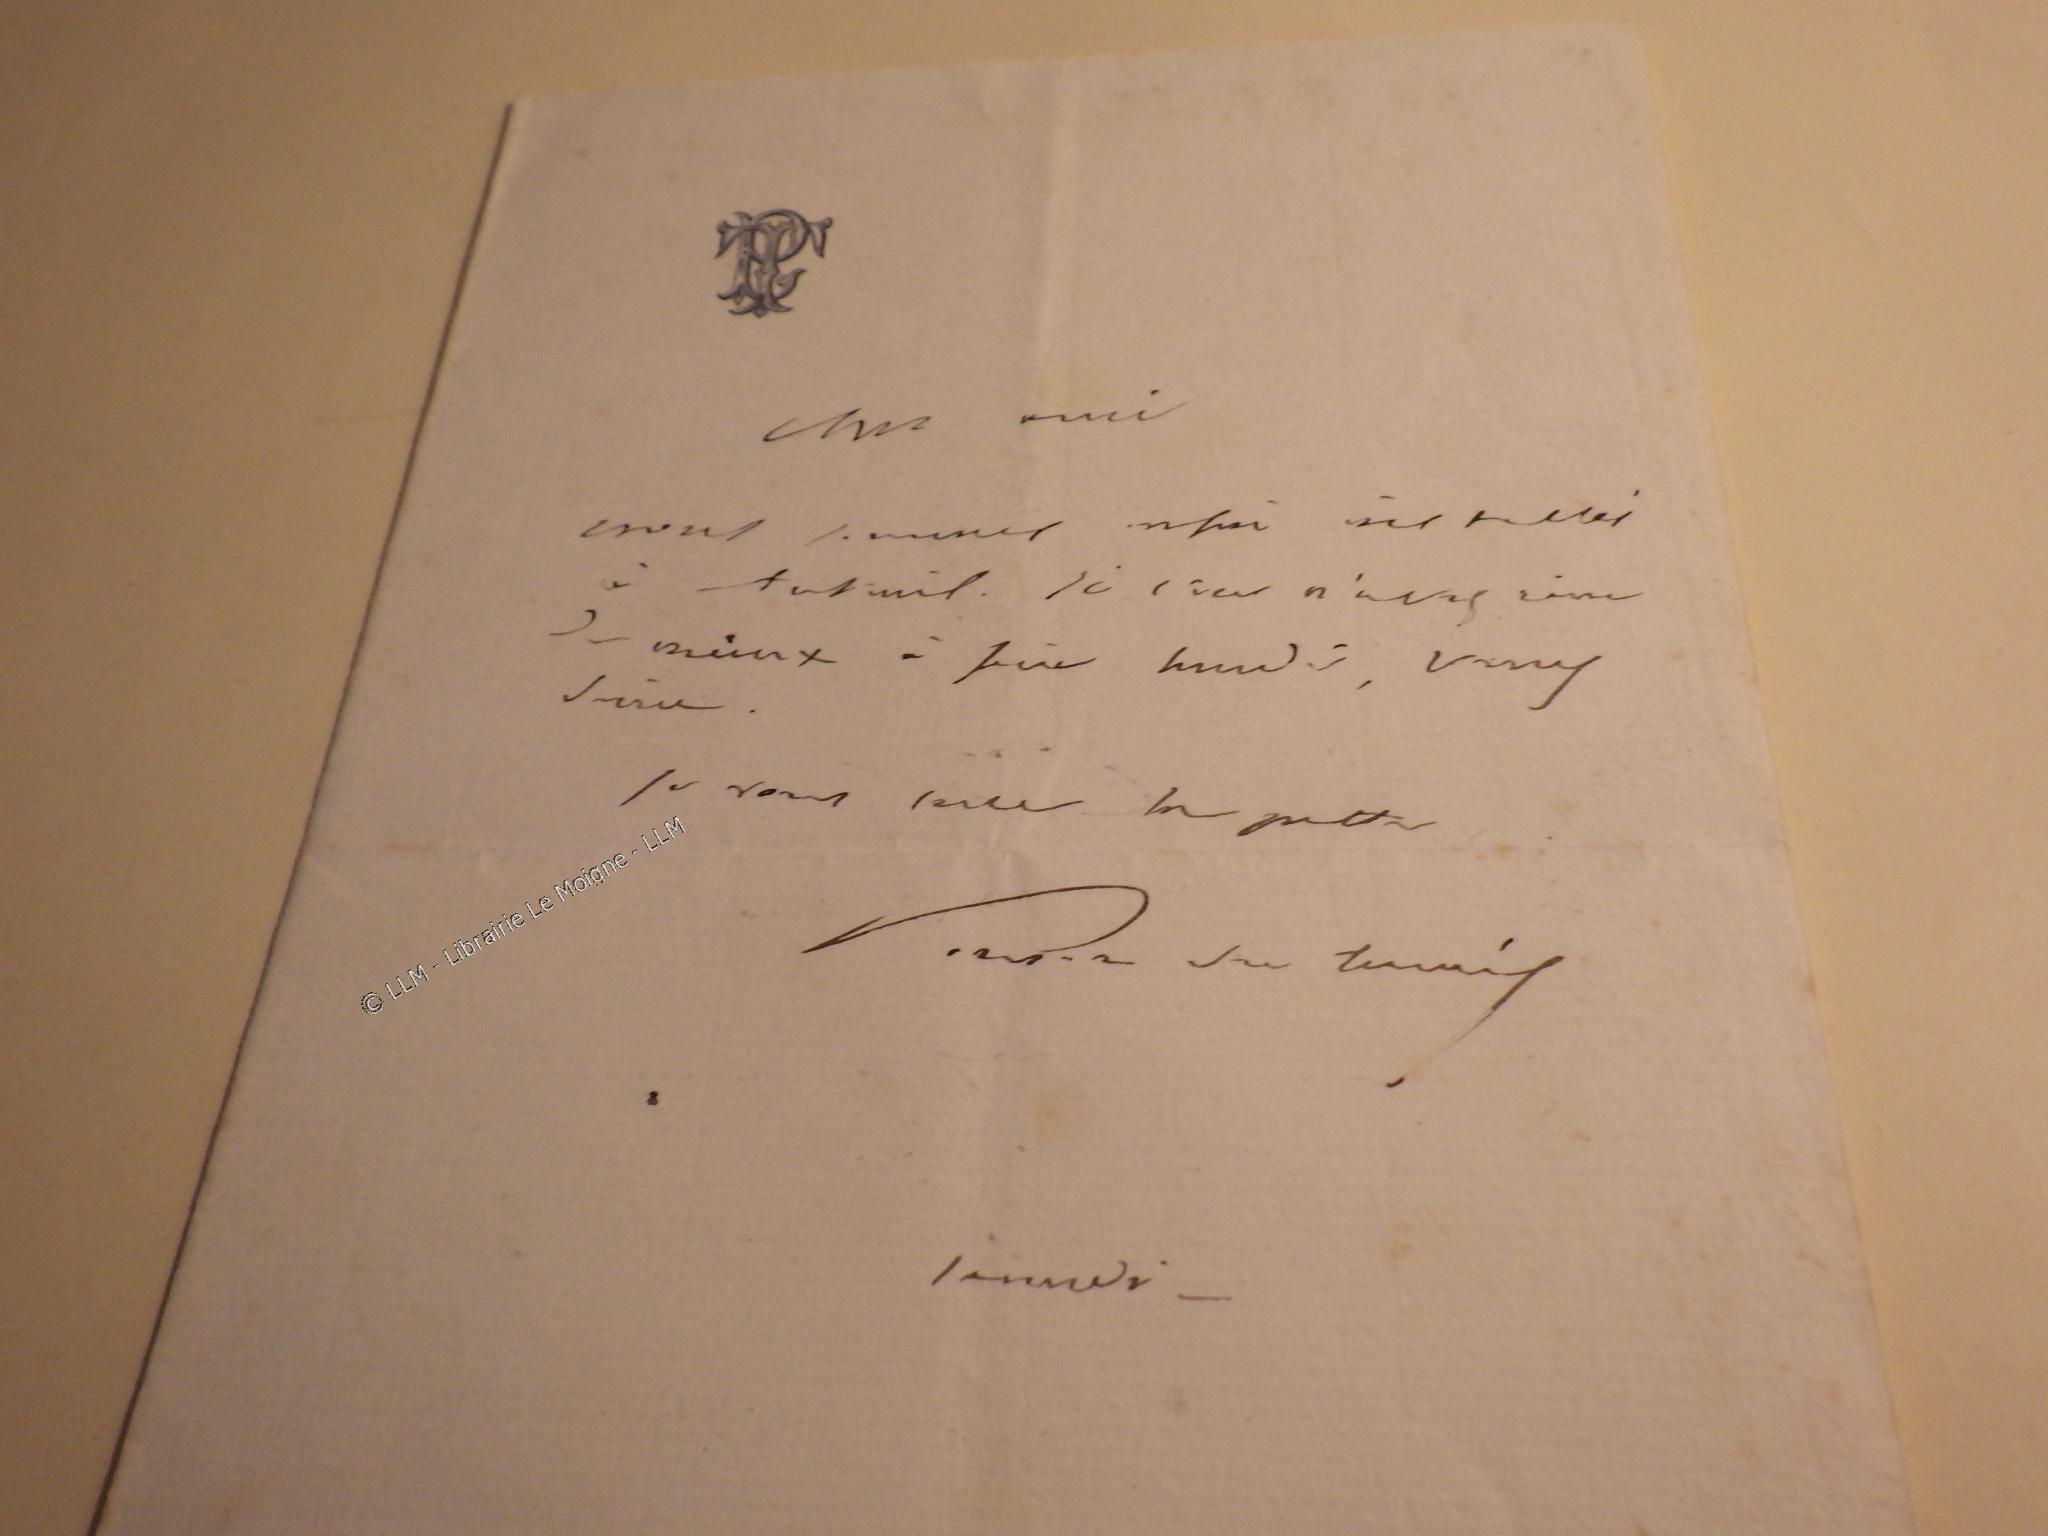 PT
Cher ami
nous sommes enfin installés
à Auteuil. Si vous n'avez rien
de mieux à faire lundi, venez
dîner.
Je vous serre la patte
Ponson du Terrail
samedi _
© LLM - Librairie Le Moigne - LLM